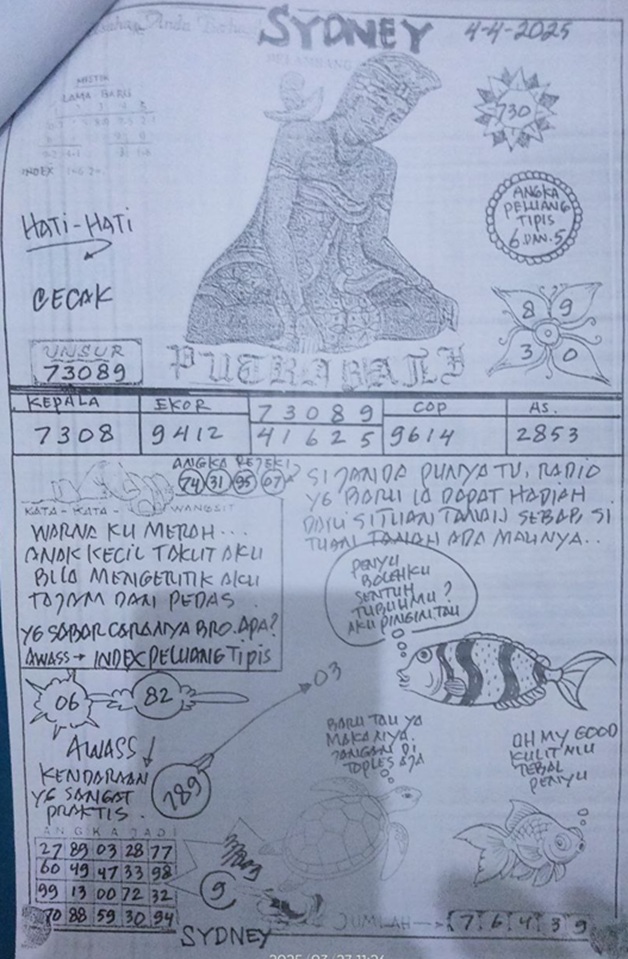 SYDNEY 4-4-2025
MISTIK
LAMA - BARU
INDEX
730
ANGKA
PELUANG
TIPIS
6 DAN 5
HATI-HATI
CECAK
8 9
3 0
UNSUR
73089
PUTRA BALI
KEPALA EKOR 73089 COP AS.
7308 9412 41625 9614 2853
ANGKA REJEKI
74 31 95 07
KATA - KATA - WANGSIT
WARNA KU MERAH...
ANAK KECIL TAKUT AKU
BILA MENGERITIK AKU
TAJAM DAN PEDAS
YG SABAR CARANYA BRO. APA?
AWASS → INDEX PELUANG TIPIS
SI JANDA PUNYA TV, RADIO
YG BARU IA DAPAT HADIAH
DARI SI TUAN TANAH SEBAB, SI
TUAN TANAH ADA MAUNYA..
PENYU
BOLEHKU
SENTUH
TUBUHMU?
AKU PINGIN TAU
06 82
03
AWASS
KENDARAAN
YG SANGAT
PRAKTIS.
789
BARU TAU YA
MAKANYA.
JANGAN DI
TOPLES AJA
OH MY GOOD
KULIT MU
TEBAL
PENYU
ANGKA JADI
27 89 03 28 77
60 49 47 33 98
99 13 00 72 32
70 88 59 30 94
9
JUMLAH → 7 6 4 3 9
SYDNEY